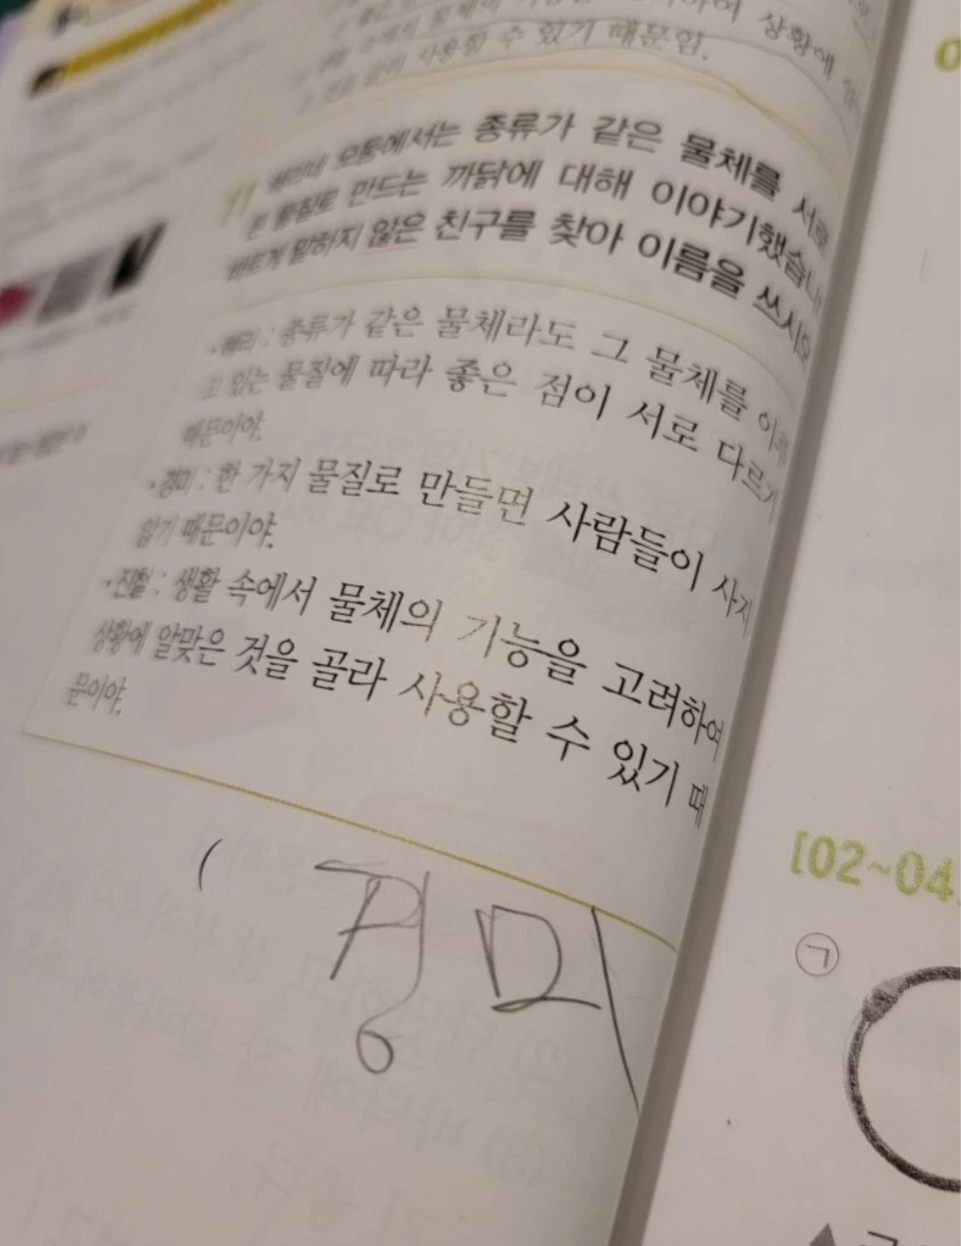 상황에
사용할 수 있기 때문임.
모둠에서는 종류가 같은 물체를 서로
물질로 만드는 까닭에 대해 이야기했습니
바르게 말하지 않은 친구를 찾아 이름을 쓰시오
종류가 같은 물체라도 그 물체를 이루
고 있는 물질에 따라 좋은 점이 서로 다르기
때문이야.
• 경미 : 한 가지 물질로 만들면 사람들이 사지
않기 때문이야.
• 진철 : 생활 속에서 물체의 기능을 고려하여
상황에 알맞은 것을 골라 사용할 수 있기 때
문이야.
( 경미
[02~04]
㉠